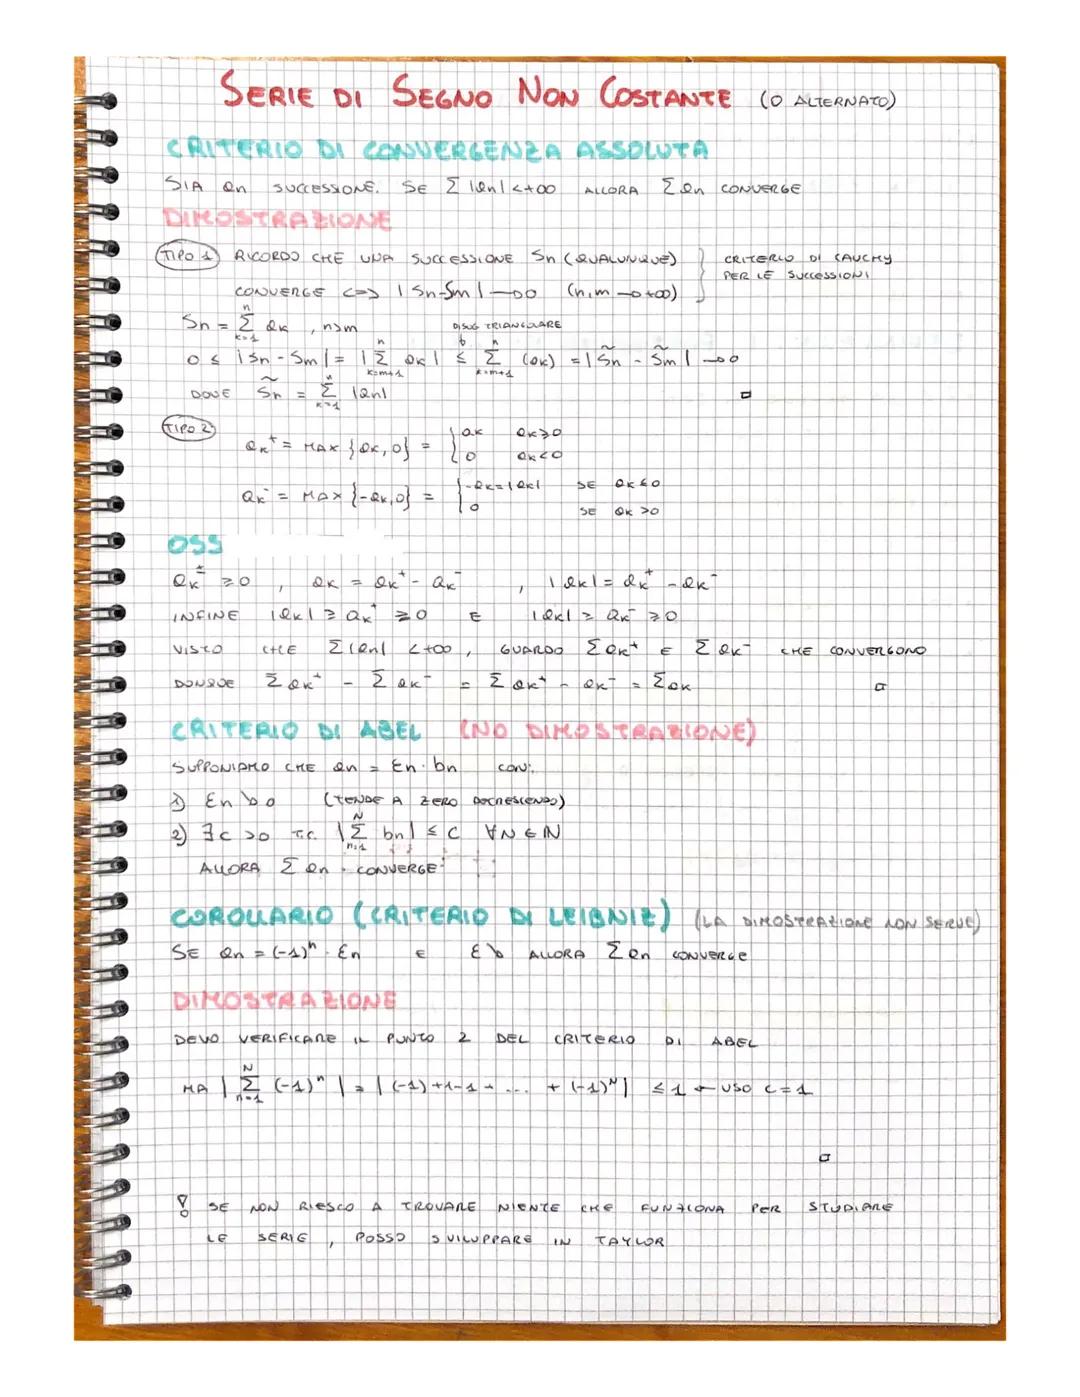 SERIE DI SEGNO NON COSTANTE (O ALTERNATO)
CRITERIO DI CONVERGENZA ASSOLUTA
SIA an SUCCESSIONE. SE Σ |an| < +∞ ALLORA Σ an CONVERGE
DIMOSTRAZIONE
TIPO 1) RICORDO CHE UNA SUCCESSIONE Sn (QUALUNQUE) } CRITERIO DI CAUCHY
PER LE SUCCESSIONI
CONVERGE <=> |Sn-Sm| → 0 (n,m → +∞)
Sn = Σ_{k=1}^{n} ak , n>m DISUG TRIANGOLARE
0 ≤ |Sn - Sm| = |Σ_{k=m+1}^{n} ak| ≤ Σ_{k=m+1}^{n} (ak) = |S̃n - S̃m| → 0
DOVE S̃n = Σ_{k=1}^{n} |an| □
TIPO 2) ak⁺ = MAX {ak,0} = { ak ak≥0
0 ak<0
ak⁻ = MAX {-ak,0} = { -ak=|ak| SE ak≤0
0 SE ak>0
OSS
ak^± ≥0 , ak = ak⁺ - ak⁻ , |ak| = ak⁺ - ak⁻
INFINE |ak| ≥ ak⁺ ≥ 0 E |ak| ≥ ak⁻ ≥ 0
VISTO CHE Σ|an| < +∞ , GUARDO Σak⁺ E Σak⁻ CHE CONVERGONO
DUNQUE Σak⁺ - Σak⁻ = Σak⁺ - ak⁻ = Σak □
CRITERIO DI ABEL (NO DIMOSTRAZIONE)
SUPPONIAMO CHE an = Ɛn · bn CON:
1) Ɛn ↘ 0 (TENDE A ZERO DECRESCENDO)
2) ∃c >0 T.C. |Σ_{n=1}^{N} bn| ≤ C ∀N ∈ ℕ
ALLORA Σ an CONVERGE
COROLLARIO (CRITERIO DI LEIBNIZ) (LA DIMOSTRAZIONE NON SERVE)
SE an = (-1)ⁿ · Ɛn E Ɛ ↘ ALLORA Σan CONVERGE
DIMOSTRAZIONE
DEVO VERIFICARE IL PUNTO 2 DEL CRITERIO DI ABEL
MA |Σ_{n=1}^{N} (-1)ⁿ| = |(-1)+1-1+ ... + (-1)ᴺ| ≤ 1 ← USO C=1
□
! SE NON RIESCO A TROVARE NIENTE CHE FUNZIONA PER STUDIARE
LE SERIE , POSSO SVILUPPARE IN TAYLOR